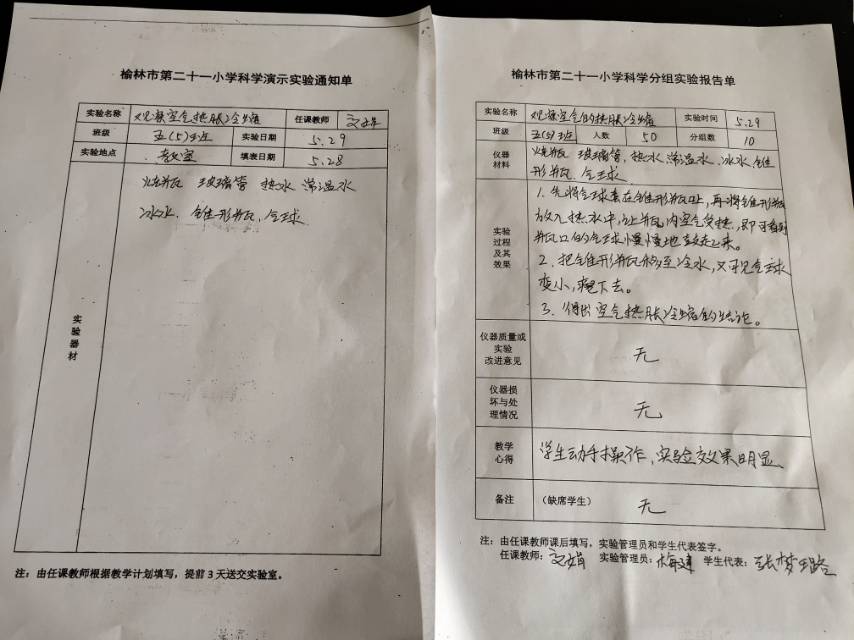 榆林市第二十一小学科学演示实验通知单
实验名称 观察空气热胀冷缩 任课教师 文娟
班级 五(5)班 实验日期 5.29
实验地点 教室 填表日期 5.28
实验器材
烧瓶 玻璃管 热水 常温水
冰水、锥形瓶、气球
注：由任课教师根据教学计划填写，提前 3 天送交实验室。
榆林市第二十一小学科学分组实验报告单
实验名称 观察空气的热胀冷缩 实验时间 5.29
班级 五(5)班 人数 50 分组数 10
仪器
材料
烧瓶 玻璃管、热水 常温水、冰水、锥
形瓶、气球
实验
过程
及其
效果
1. 先将气球套在锥形瓶口上，再将锥形瓶
放入热水中，让瓶内空气受热，即可看到
瓶口的气球慢慢地鼓起来。
2. 把锥形瓶移至冷水，又可见气球
变小，瘪下去。
3. 得出空气热胀冷缩的结论。
仪器质量或
实验
改进意见
无
仪器损
坏与处
理情况
无
教学
心得
学生动手操作，实验效果明显
备注 （缺席学生） 无
注：由任课教师课后填写，实验管理员和学生代表签字。
任课教师：文娟 实验管理员：梅建 学生代表：张梦璐